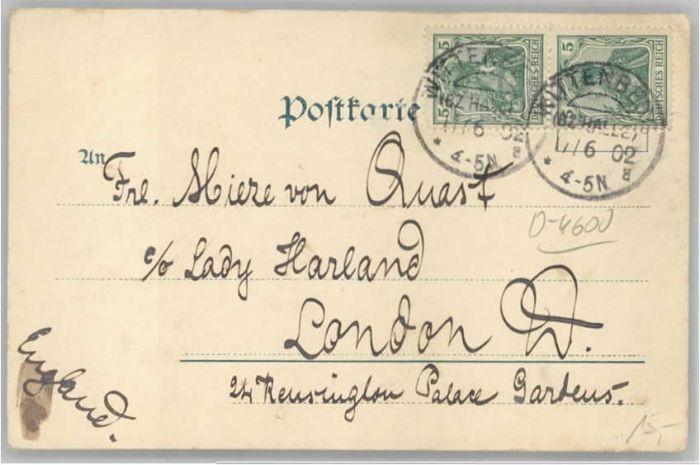 5 DEUTSCHES REICH 5 DEUTSCHES REICH
WITTENBERG
(BZ HALLE)
7/6 02
* 4-5N a
WITTENBERG
(BZ HALLE)
7/6 02
* 4-5N a
Postkarte
An
Frl. Mieze von Quast
c/o Lady Harland
London W.
24 Kensington Palace Gardens.
England.
D-4600
15,-